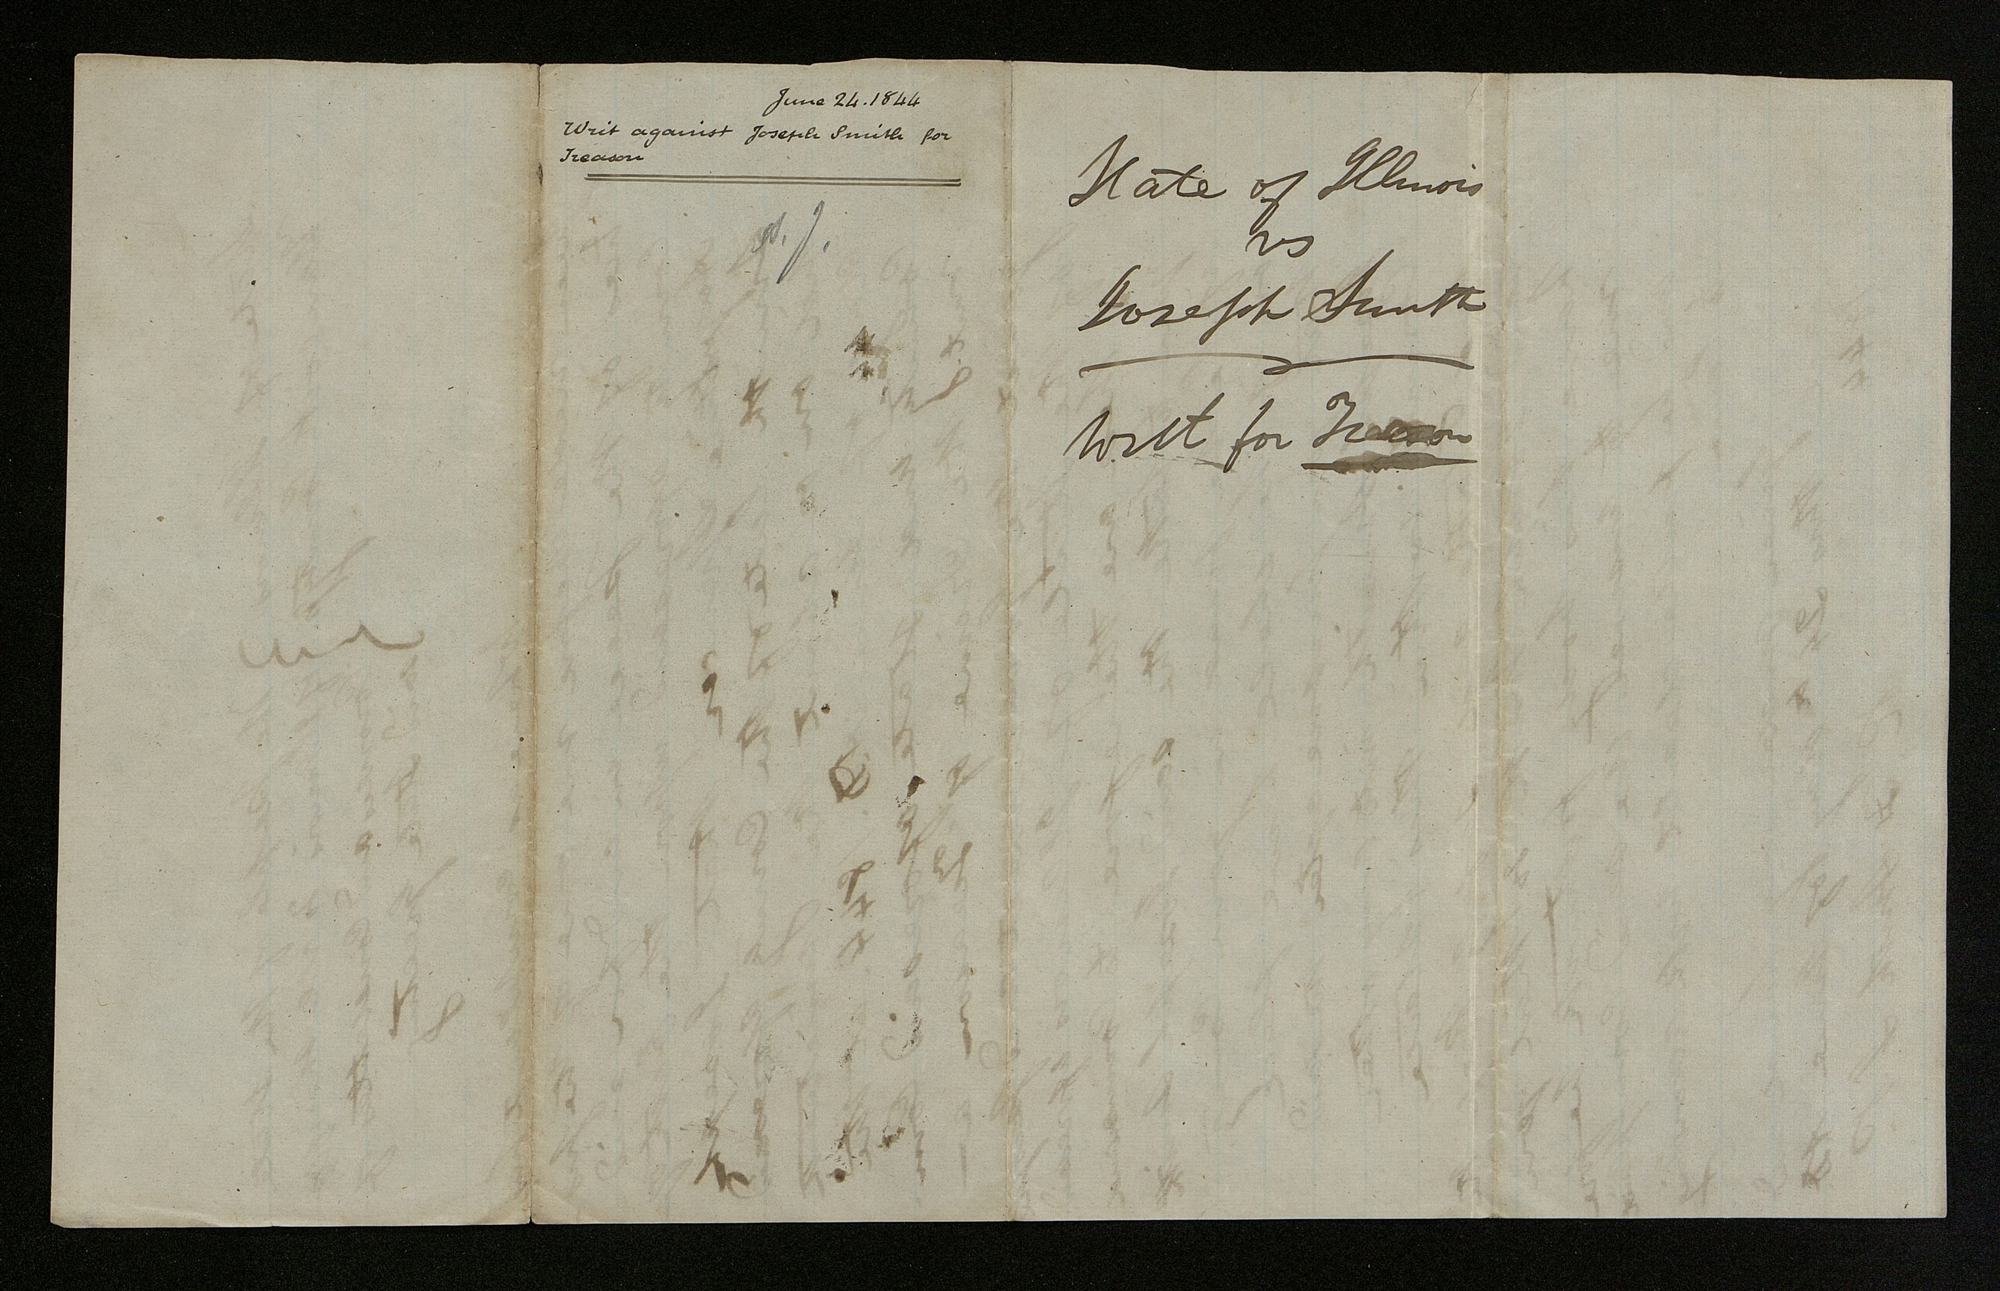 June 24. 1844
Writ against Joseph Smith for
Treason
State of Illinois
vs
Joseph Smith
Writ for Treason